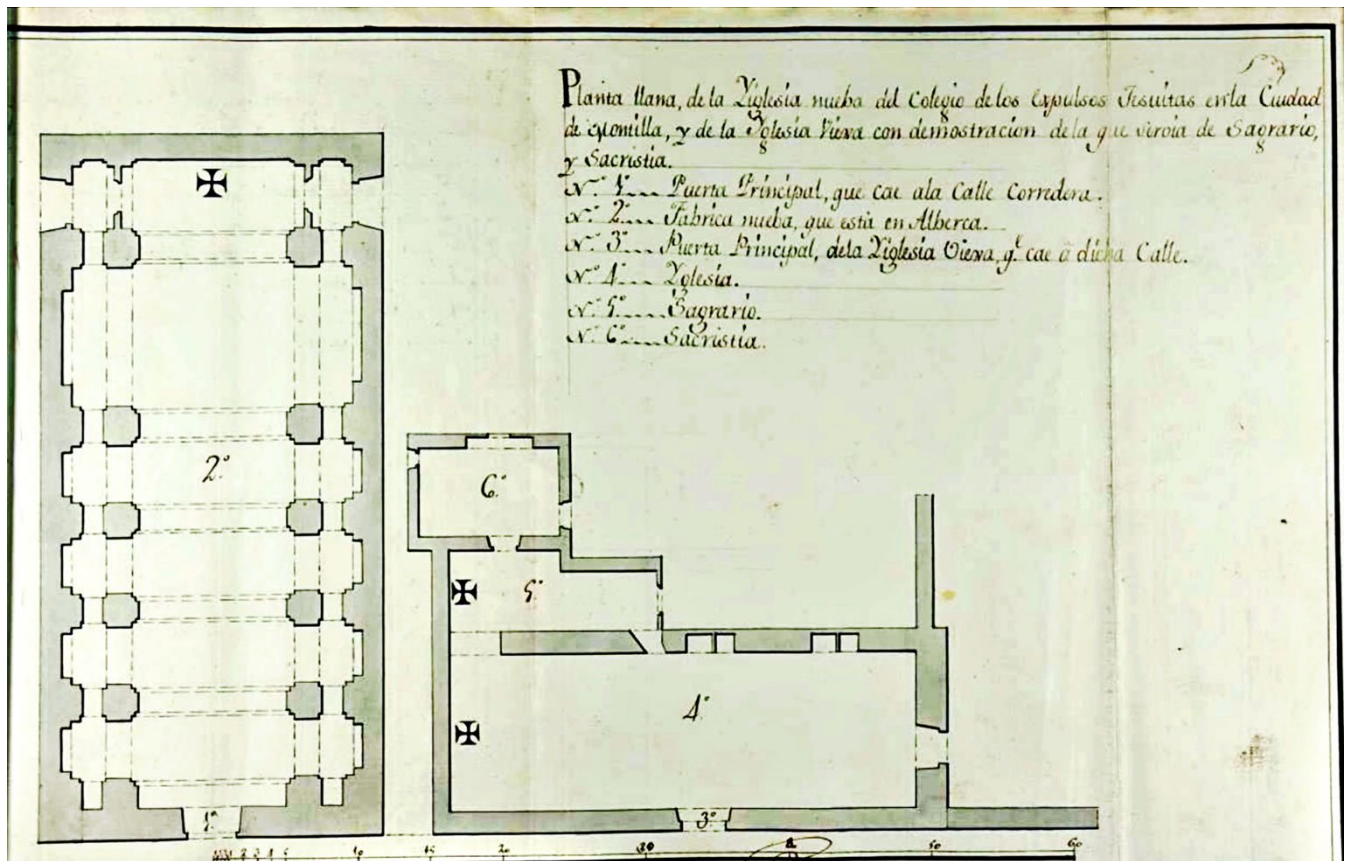 Planta llana, de la Yiglesia nueba del Colegio de los Expulsos Jesuitas en la Ciudad
de Montilla, y de la Yglesia Viexa con demostracion de la que servia de Sagrario,
y Sacristia.
N.º 1º.... Puerta Principal, que cae ala Calle Corredera.
N.º 2º.... Fabrica nueba, que està en Alberca.
N.º 3º.... Puerta Principal, dela Yiglesia Viexa, q.e cae a dicha Calle.
N.º 4º.... Yglesia.
N.º 5º.... Sagrario.
N.º 6º.... Sacristia.
6º
2º
5º
4º
1º
3º
1 2 3 4 5 10 15 20 30 50 60